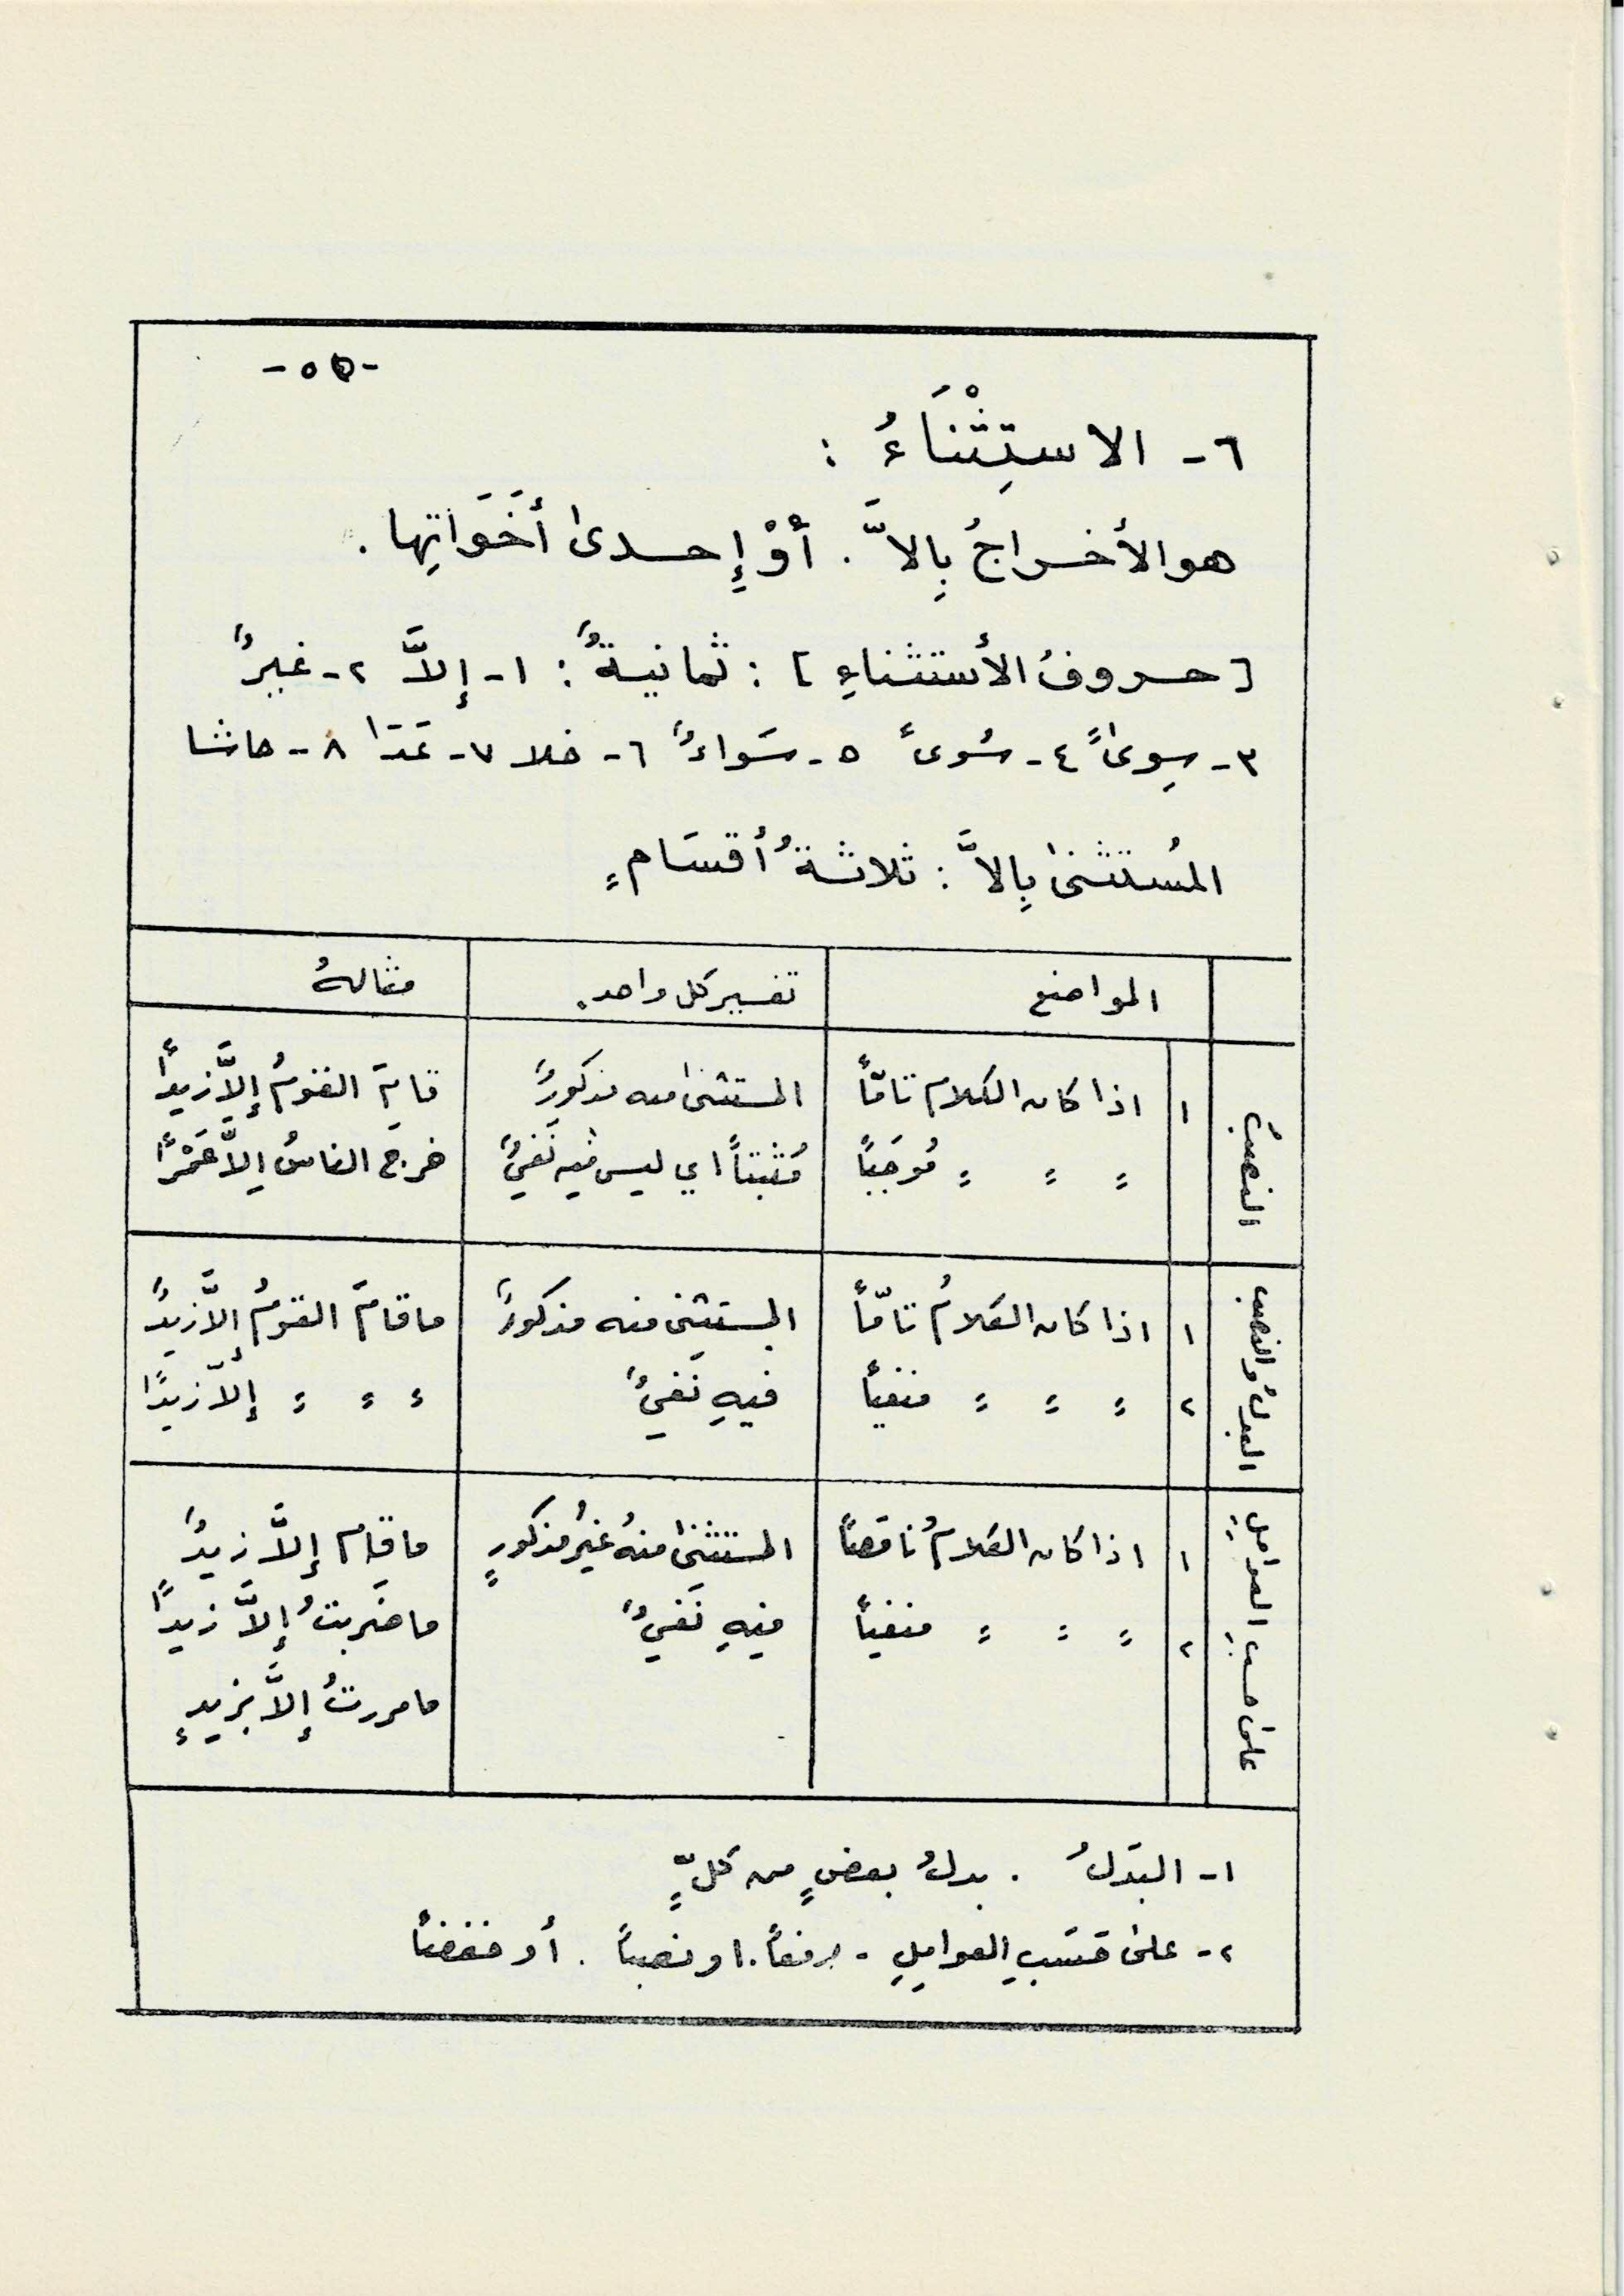 -٥٥-
٦- الاستِثْنَاءُ :
هو الأخراجُ بِالاَّ . أوْ إِحدىٰ أخَوَاتِها .
[حروفُ الأستثناءِ] : ثمانيةٌ : ١- إلاَّ ٢- غيرٌ
٣- سِوىً ٤- سُوىً ٥- سَواءٌ ٦- خلا ٧- عَدَا ٨- حاشا
المُستثنىٰ بِالاَّ : ثلاثةُ أقسَامٍ
المواضع | تفسير كل واحد. | مثالهُ
النصبُ | ١ | اذا كان الكلام تامّاً | المستثنىٰ منه مذكورٌ | قامَ القومُ إلاَّ زيداً
" " " مُوجَباً | مُثبتاً اي ليس فيه نَفيٌ | خرج الناسُ إلاَّ عَمْرًا
البدلُ والنصب | ١ | اذا كان الكلامُ تامّاً | المستثنى منه مذكورٌ | ما قامَ القومُ إلاَّ زيدٌ
٢ | " " " منفياً | فيهِ نَفيٌ | " " " إلاّ زيدًا
علىٰ حسبِ العواملِ | ١ | اذا كان الكلامُ ناقصاً | المستثنىٰ منهُ غيرُ مذكورٍ | ما قام إلاَّ زيدٌ
٢ | " " " منفياً | فيهِ نَفيٌ | ما ضَربتُ إلاَّ زيدًا
ما مررتُ إلاَّ بزيدٍ
١- البدَلُ . بدلُ بعضٍ من كلٍّ
٢- علىٰ حسَبِ العواملِ - رفعاً . او نصباً . أو خفضاً